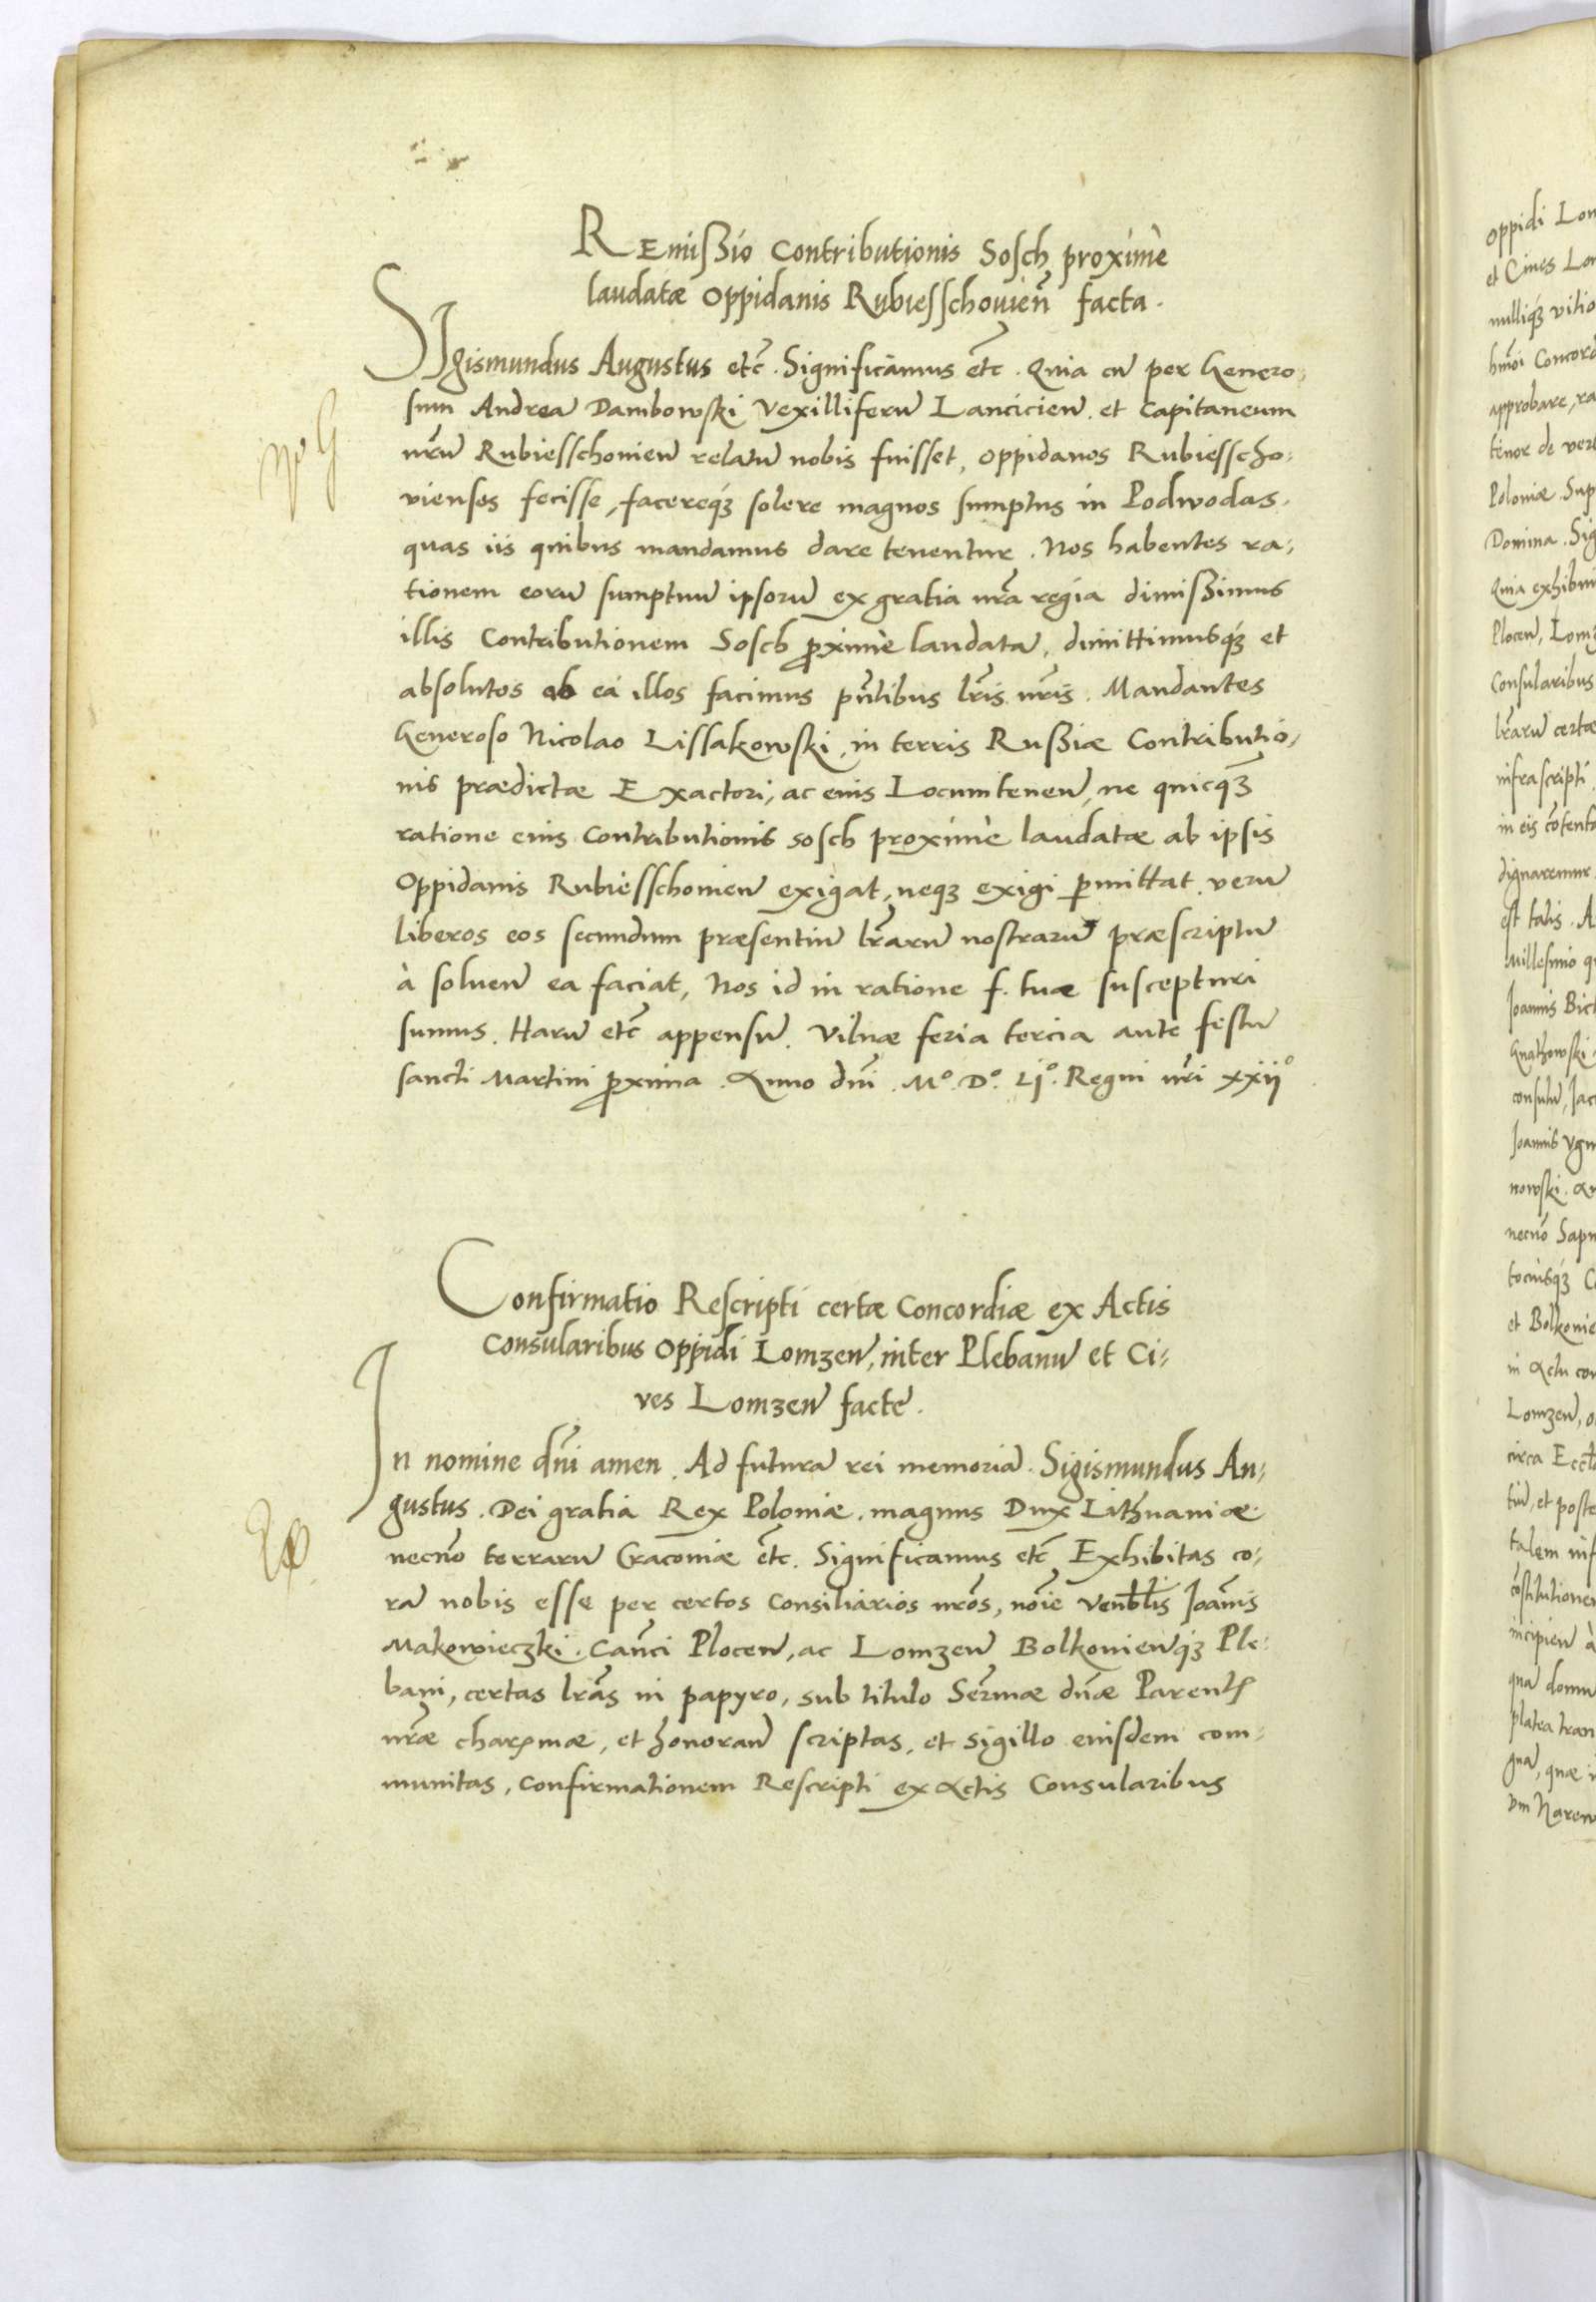 REmißio Contributionis Sosch proximè
laudatæ Oppidanis Rubiesschouień facta.
SIgismundus Augustus etc̃. Significamus etc̃. Quia cũ per Genero-
sum Andreã Dambowski Vexilliferũ Lancicieñ et Capitaneum
nr̃um Rubiesschouieñ relatũ nobis fuisset, Oppidanos Rubiesscho-
vienses fecisse, facereq́ꝫ solere magnos sumptus in Podwodas
quas iis quibus mandamus dare tenentur. Nos habentes ra-
tionem eorũ sumptuũ ipsorũ ex gratia nr̃a regia dimißimus
illis Contributionem Sosch ꝓximè laudatã, dimittimusq́ꝫ et
absolutos ab eá illos facimus pñtibus lr̃is nr̃is. Mandantes
Generoso Nicolao Lissakowski, in terris Rußiæ Contributio-
nis prædictæ Exactori, ac eius Locumteneñ, ne quicq̃ꝫ
ratione eius Contributionis sosch proximè laudatæ ab ipsis
Oppidanis Rubiesschouieñ exigat, neqꝫ exigi ꝑmittat. verũ
liberos eos secundum præsentiũ lr̃arũ nostrarũ præscriptũ
à solueñ ea faciat, Nos id in ratione f. tuæ suscepturi
sumus. Harũ etc̃ appensũ. Vilnæ feria tercia ante festũ
sancti Martini ꝓxima. Anno dñi Mº. Dº. Ljº. Regni nr̃i xxijº
Confirmatio Rescripti certæ Concordiæ ex Actis
Consularibus Oppidi Lomzeñ, inter Plebanũ et Ci-
ves Lomzeñ facte.
In nomine dñi amen. Ad futurã rei memoriã. Sigismundus Au-
gustus. Dei gratia Rex Poloniæ. magnus Dux Lithuaniæ
necnõ terrarũ Cracouiæ etc̃. Significamus etc̃ Exhibitas co-
rã nobis esse per certos Consiliarios nr̃os, nõie Venb̃lis Joãnis
Makowieczki. Cañci Ploceñ, ac Lomzeñ Bolkouieñq́ꝫ Ple-
bani, certas lr̃as in papyro, sub titulo Ser̃mæ dñæ Parentꝭ
nr̃æ charꝭmæ, et honorañ scriptas, et sigillo eiusdem com-
munitas, confirmationem Rescripti ex Actis Consularibus
oppidi Lom
et Ciues Lom
nulliq́ꝫ vitio
hmõi Concord
approbare, ra
tenor de ver
Poloniæ. Sup
Domina. Sig
Quia exhibui
Ploceñ, Lomz
Consularibus
lr̃arũ certæ
infrascripti
in eis cõtenta
dignaremur
est talis. A
Millesimo q
Joannis Bic
Gnathowski
consulũ, Jac
Joannis Vgn
nowski. An
necnõ Sap
tociusq́ꝫ C
et Bolkouie
in Actu con
Lomzeñ, o
circa Eccl̃
tiũ, et poste
talem inf
cõstitutionem
incipieñ à
qua domu
platea tran
gna, quæ i
vm Narew